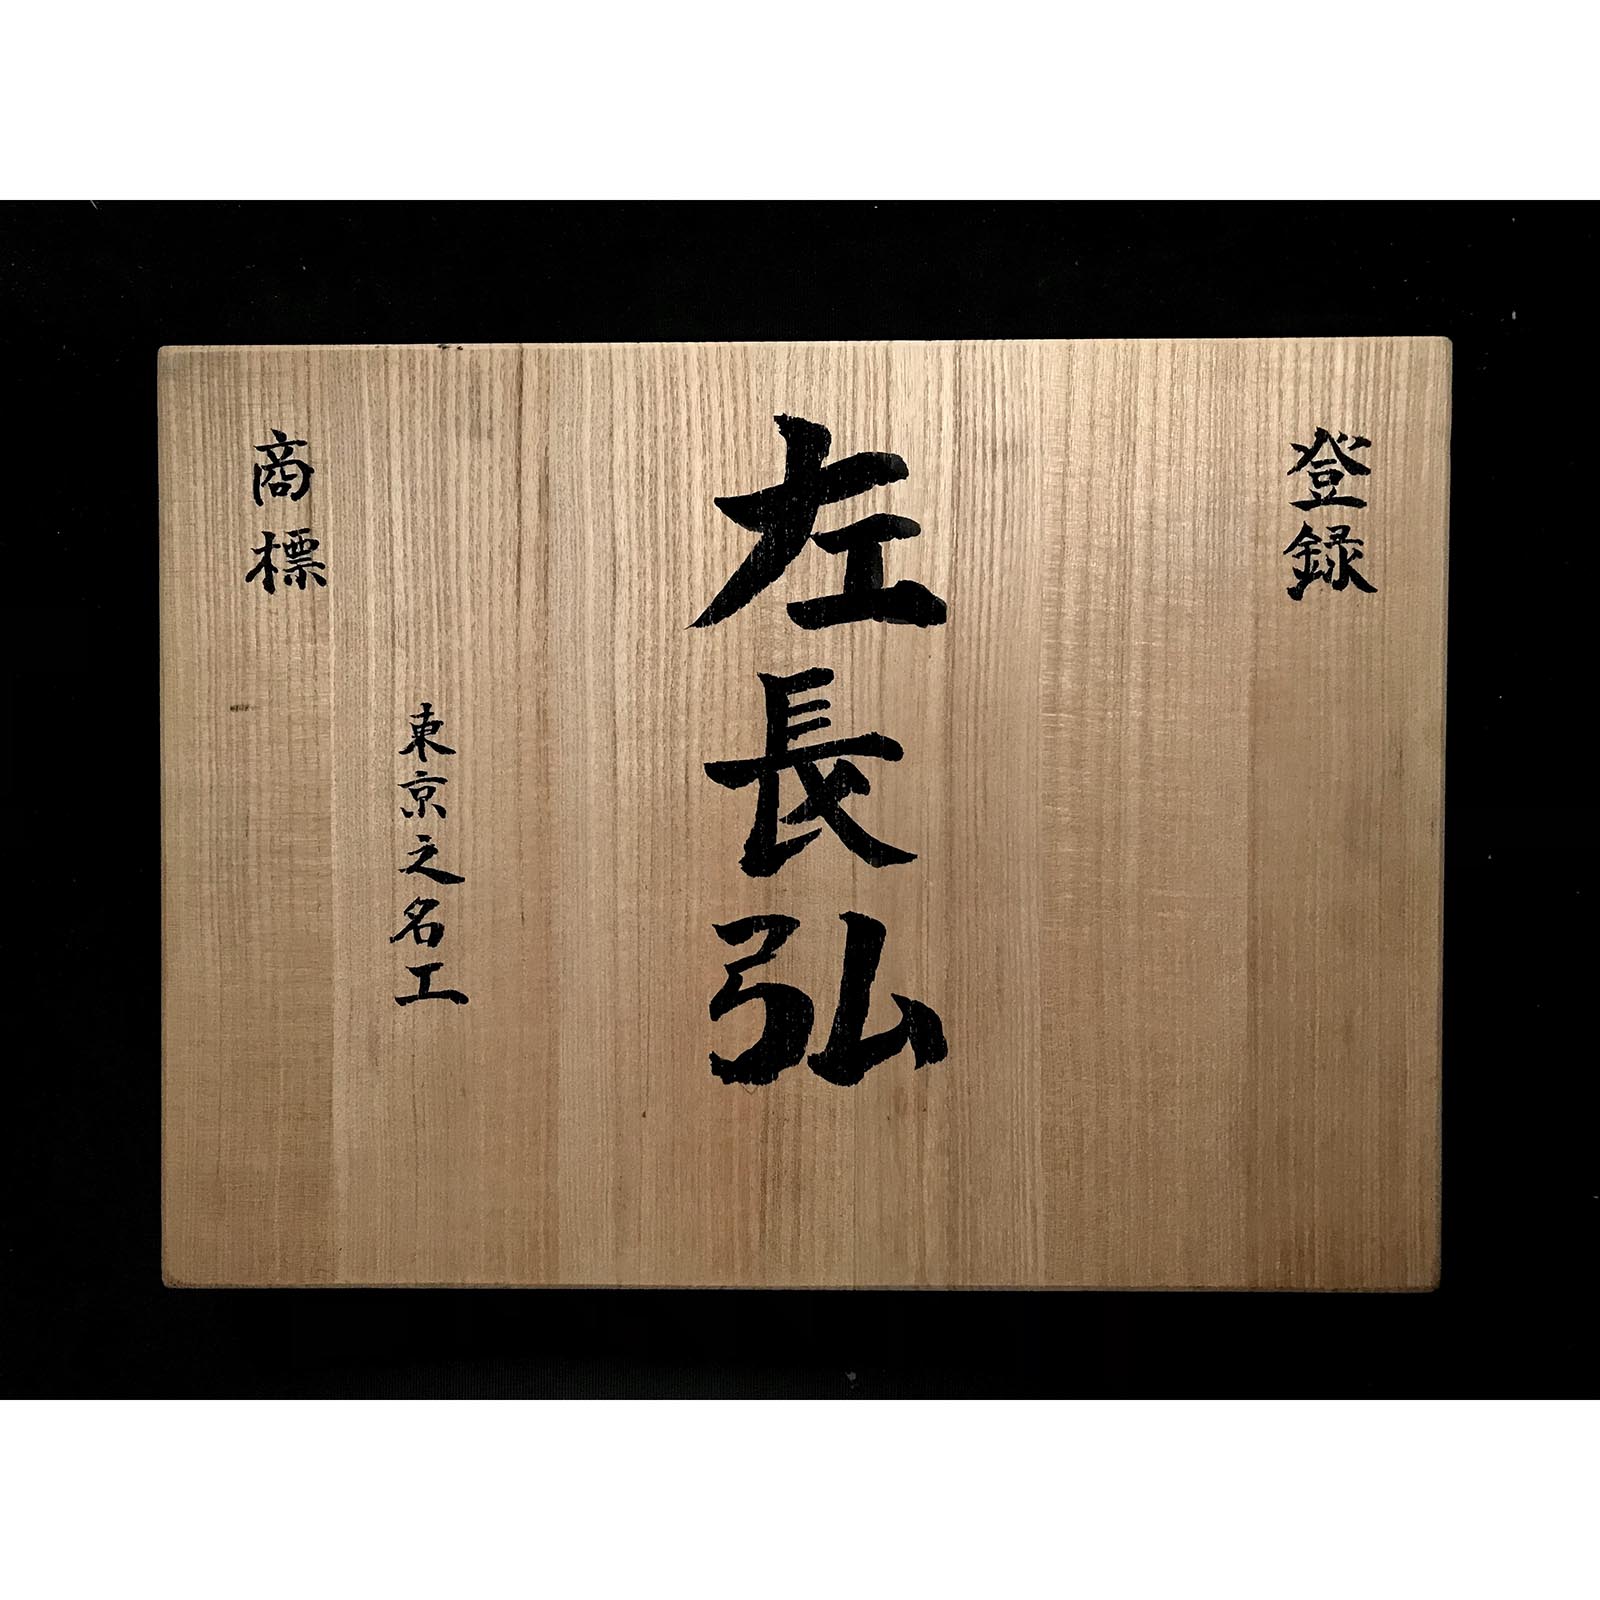 登録
左長弘
東京之名工
商標